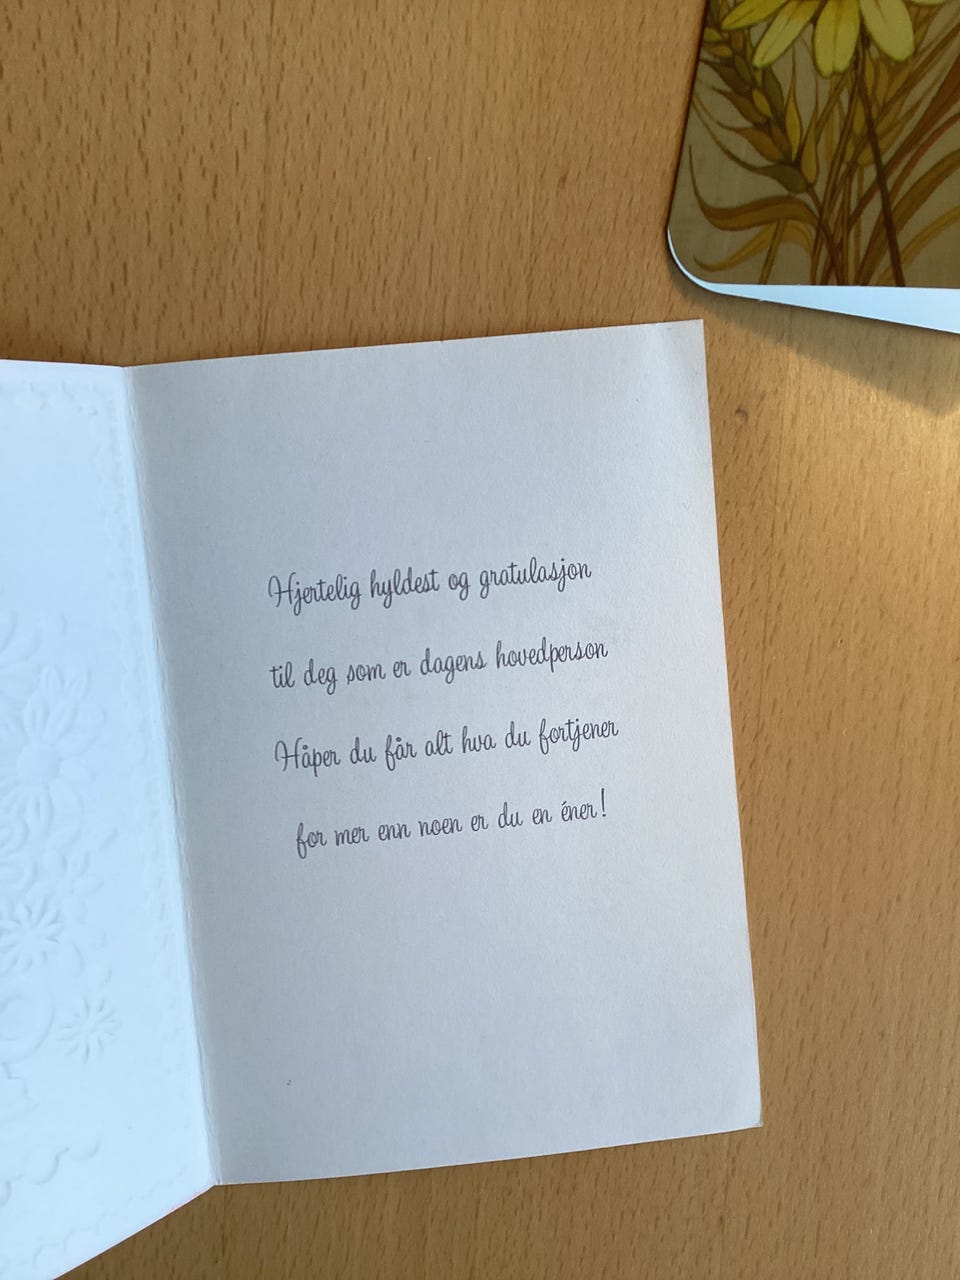 Hjertelig hyldest og gratulasjon
til deg som er dagens hovedperson
Håper du får alt hva du fortjener
for mer enn noen er du en éner!